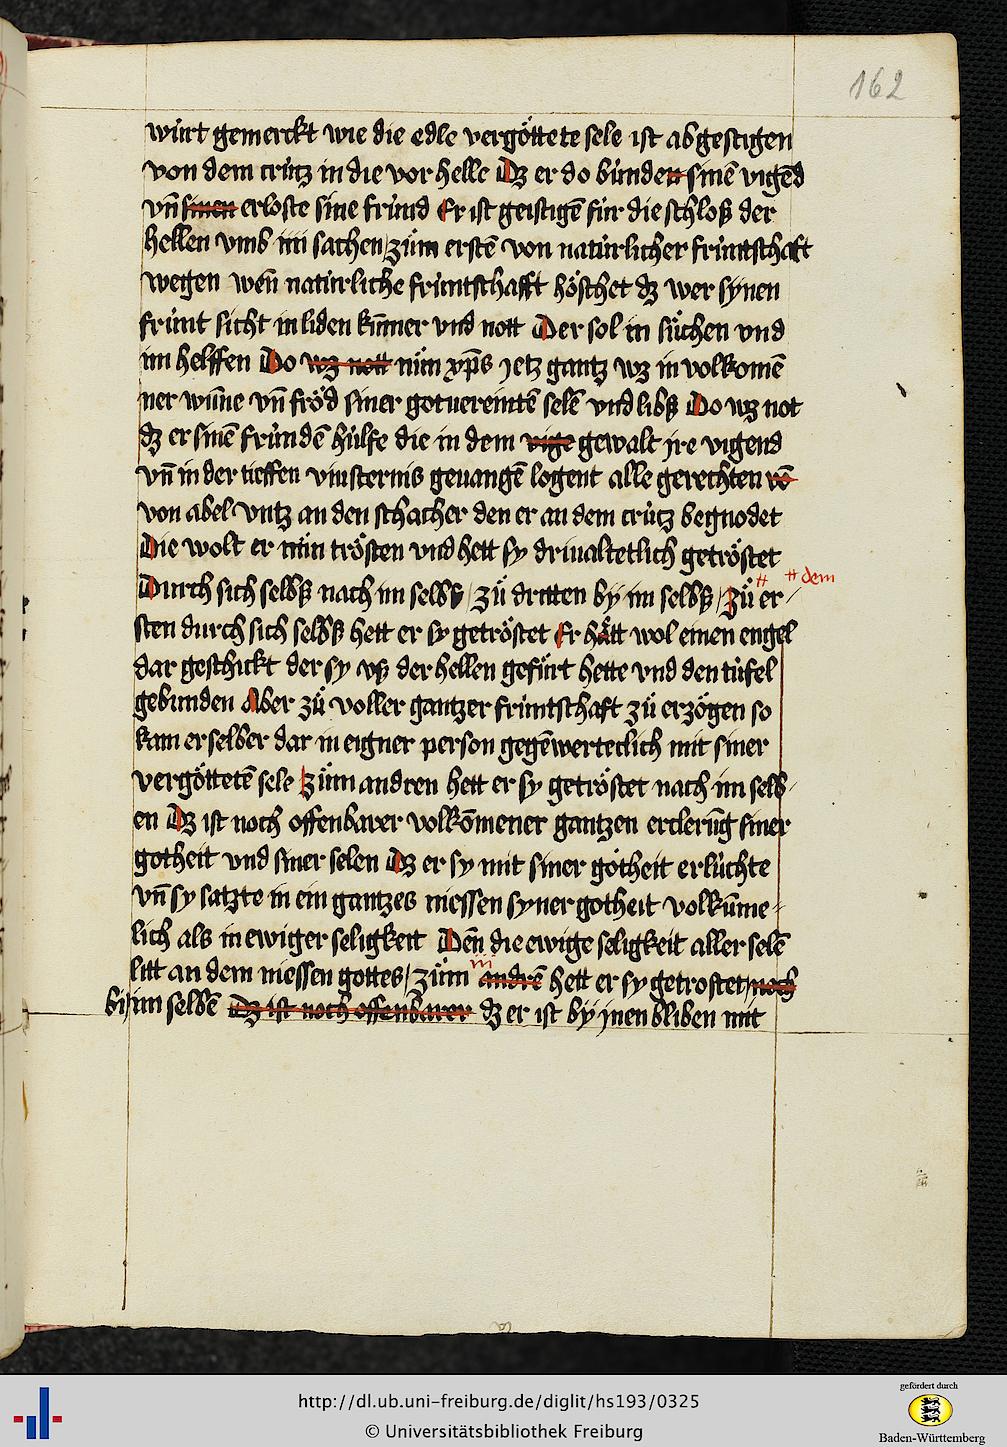 162
würt gemerckt wie die edle vergöttete sele ist abgestigen
von dem crütz in die vor helle Dz er do bunden sinē vigēd
vn̄ sinen erloste sine fründ Er ist geistigē für die schloß der
hellen vmb iiii sachen / zům erstē von natürlicher früntschaft
wegen wēn natürliche früntschafft höschet dz wer synen
frünt sicht in liden kum̄er vnd nott Der sol in sůchen vnd
im helffen Do wz nott nům xp̄s jetz gantz wz in volkomē
ner wūne vn̄ fröd siner gotuereintē selē vnd libß Do wz not
dz er sinē fründē hülfe die in dem vige gewalt jre vigend
vn̄ in der tieffen vinsternis geuangē logent alle gerechten vō
von abel vntz an den schacher den er an dem crütz begnodet
Die wolt er nůn trösten vnd hett sy driualtetlich getröstet
Durch sich selbß nach im selbß / zů dritten by im selbß / Zů er- # dem
sten durch sich selbß hett er sy getröstet Er hätt wol einen engel
dar geschickt der sy vß der hellen gefürt hette vnd den tüfel
gebunden Aber zů voller gantzer früntschaft zů erzögen so
kam er selber dar in eigner person gegēwerteclich mit siner
vergöttetē sele Zům andren hett er sy getröstet nach im selb-
en Dz ist noch offenbarer volkōmener gantzen erclerūg siner
gotheit vnd siner selen Dz er sy mit siner gotheit erlüchte
vn̄ sy satzte in ein gantzes niessen syner gotheit volkūme-
lich als in ewiger seligkeit Dēn die ewige seligkeit aller selē
litt an dem niessen gottes / zům andrē iii hett er sy getrostet noch
bij im selbē Dz ist noch offenbarer dz er ist bÿ jnen bliben mit
http://dl.ub.uni-freiburg.de/diglit/hs193/0325
© Universitätsbibliothek Freiburg
gefördert durch
Baden-Württemberg